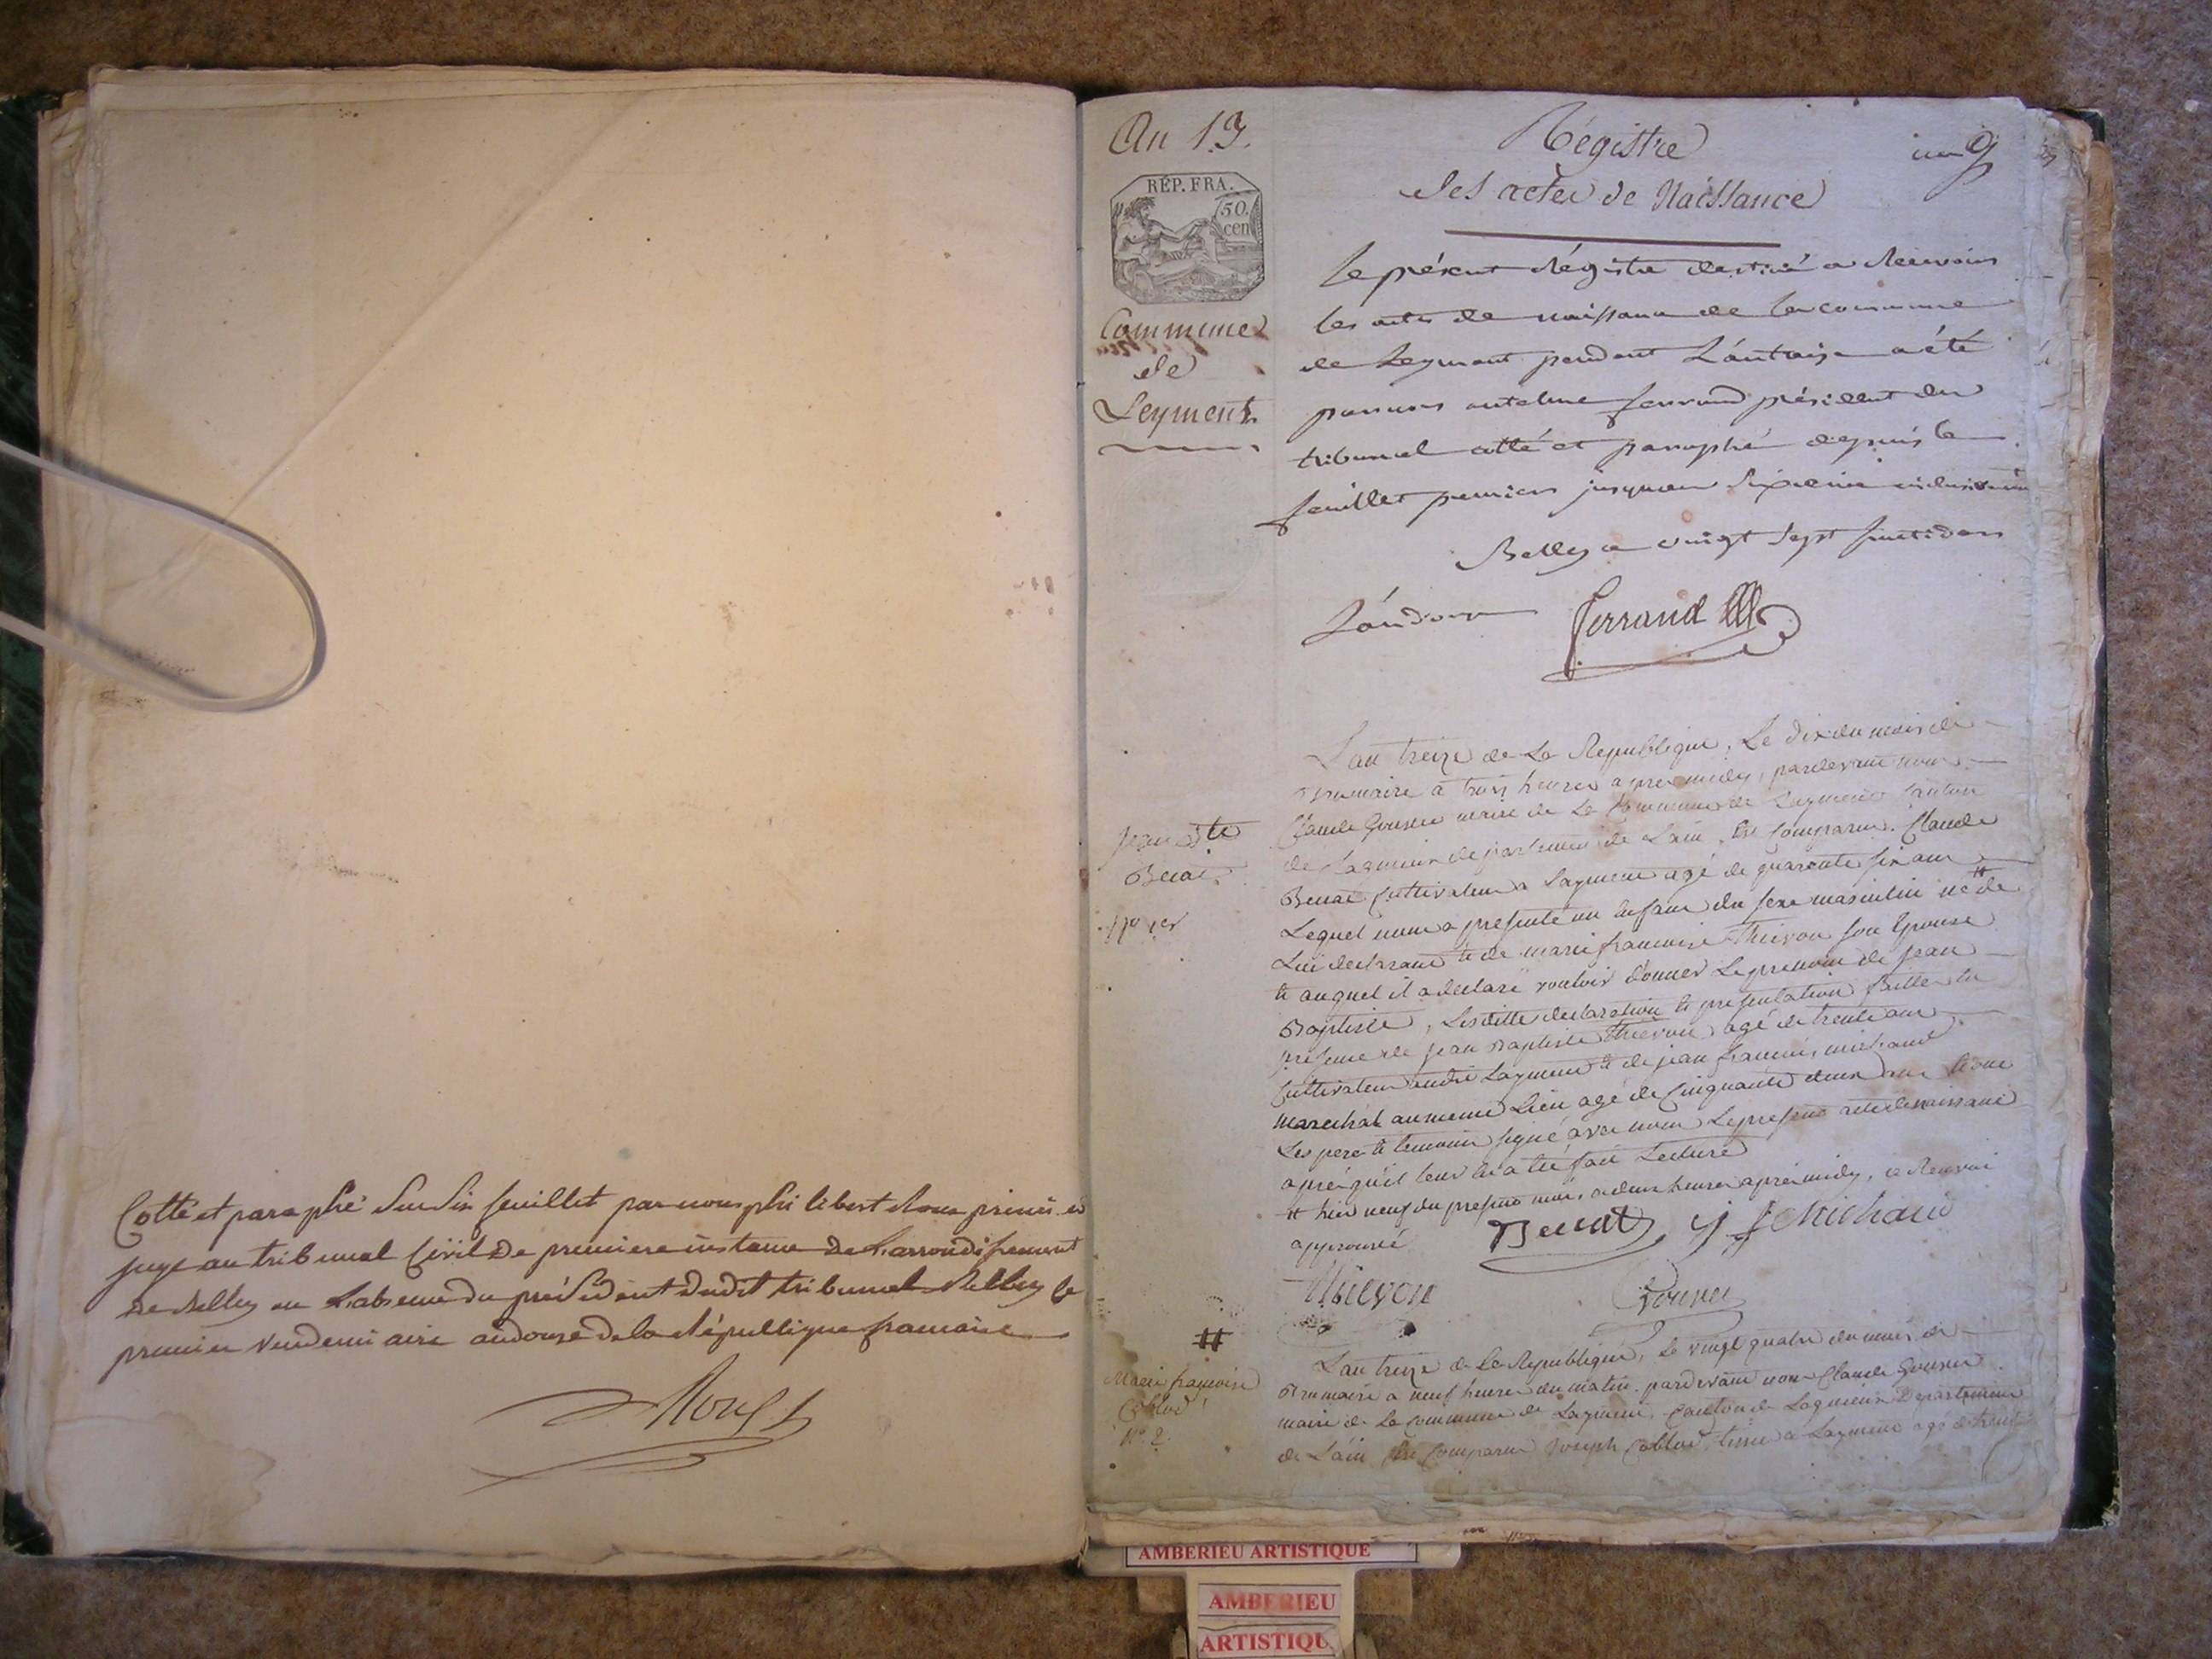 Cotté et paraphé Sur Six feuillet par nous philibert Rouge premier
juge au tribunal Civil De premiere instance De L'arrondissement
De Belley en L'absence du président Dudit tribunal Belley le
premier vendemiaire an douse de la République francaise
An 13.
RÉP. FRA.
50.
cen
Commune
de
Leyment
Régistre
des actes de Naissance
Le présent Régistre destiné a Recevoir
les actes de naissance de la commune
de Leyment pendant L'an treise a été
par nous antelme ferrand président du
tribunal cotté et paraphé depuis le
feuillet premier jusqu'au Sixieme inclusivement
Belley ce vingt Sept fructidor
L'an douse Ferrand
Jean Bte
Benat
No 1er
L'an treize de La Republique, Le dix du mois de
Brumaire a trois heures apres midy, pardevant nous
Claude Gouner maire de La Commune de Layment Canton
de Lagnieux departement de Lain, Est Comparu Claude
Benat Cultivateur a Layment agé de quarente six ans
Lequel nous a presenté un Enfant du sexe masculin né # de
Lui declarant et de marie francoise Thievon son Epouse
et auquel il a declaré vouloir donner Le prenom de Jean
Baptiste, Lesditte declaration et presentation faittes en
presence de Jean Baptiste Thievon agé de trente ans
Cultivateur audit Layment et de jean francois michaud
marechal au meme Lieu agé de Cinquante deux ans
Les pere et temoins signé avec nous Le present acte de naissance
aprés qu'il leur En a été fait Lecture
# hier neuf du present mois a deux heures aprés midy, ce Renvoi
approuvé Benat J f Michaud
Thievon Gouner
#
Marie françoise
Collod
No. 2.
L'an treize de La Republique, Le vingt quatre du mois de
Brumaire a neuf heures du matin, pardevant nous Claude Gouner
maire de La Commune de Layment, Canton de Lagnieux Departement
de L'ain Est Comparu Joseph Collod a Layment agé de trente
AMBERIEU ARTISTIQUE
AMBERIEU
ARTISTIQU